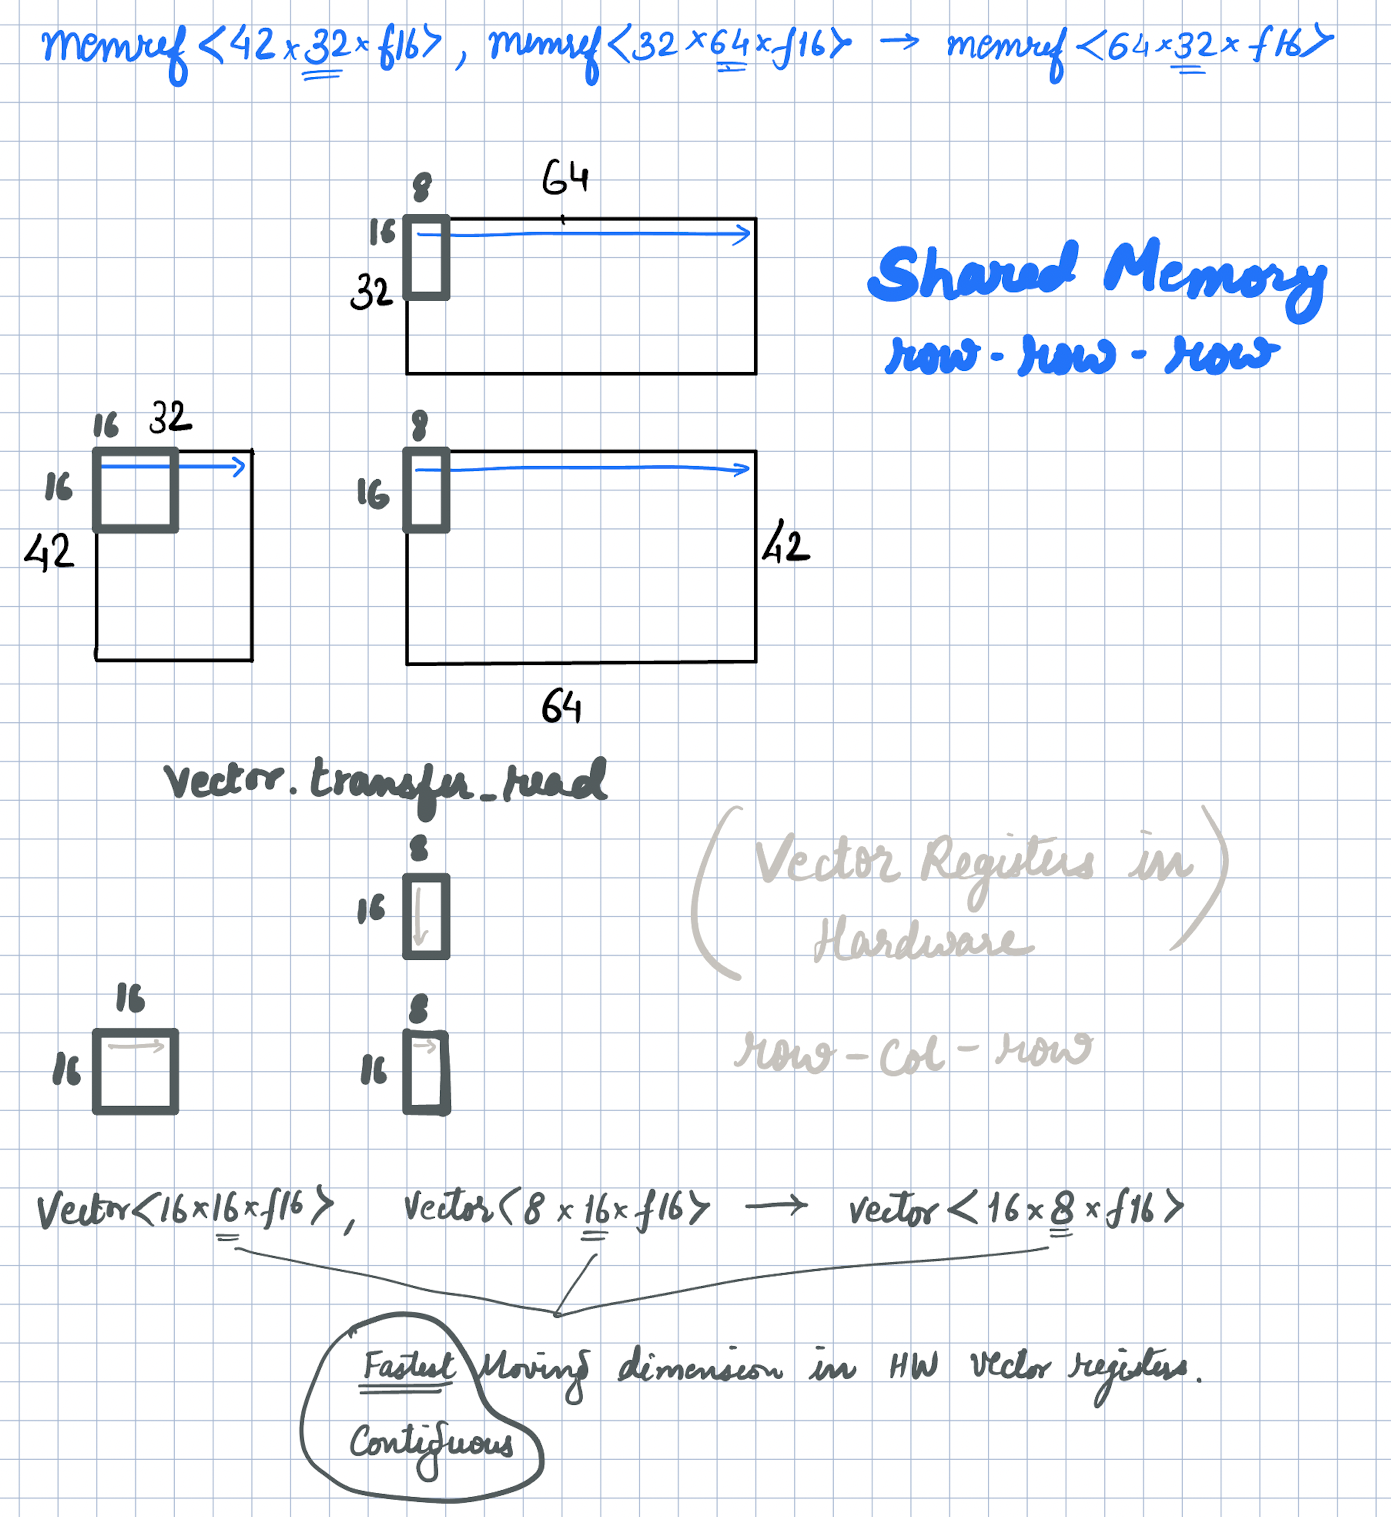 memref<42×32×f16>, memref<32×64×f16> → memref<64×32×f16>
8
64
16
32
Shared Memory
row-row-row
16 32
16
42
8
16
42
64
vector.transfer_read
8
16
(Vector Registers in
Hardware)
row-col-row
16
16
8
16
Vector<16×16×f16>, vector<8×16×f16> → vector<16×8×f16>
Fastest Moving dimension in HW vector registers.
Contiguous